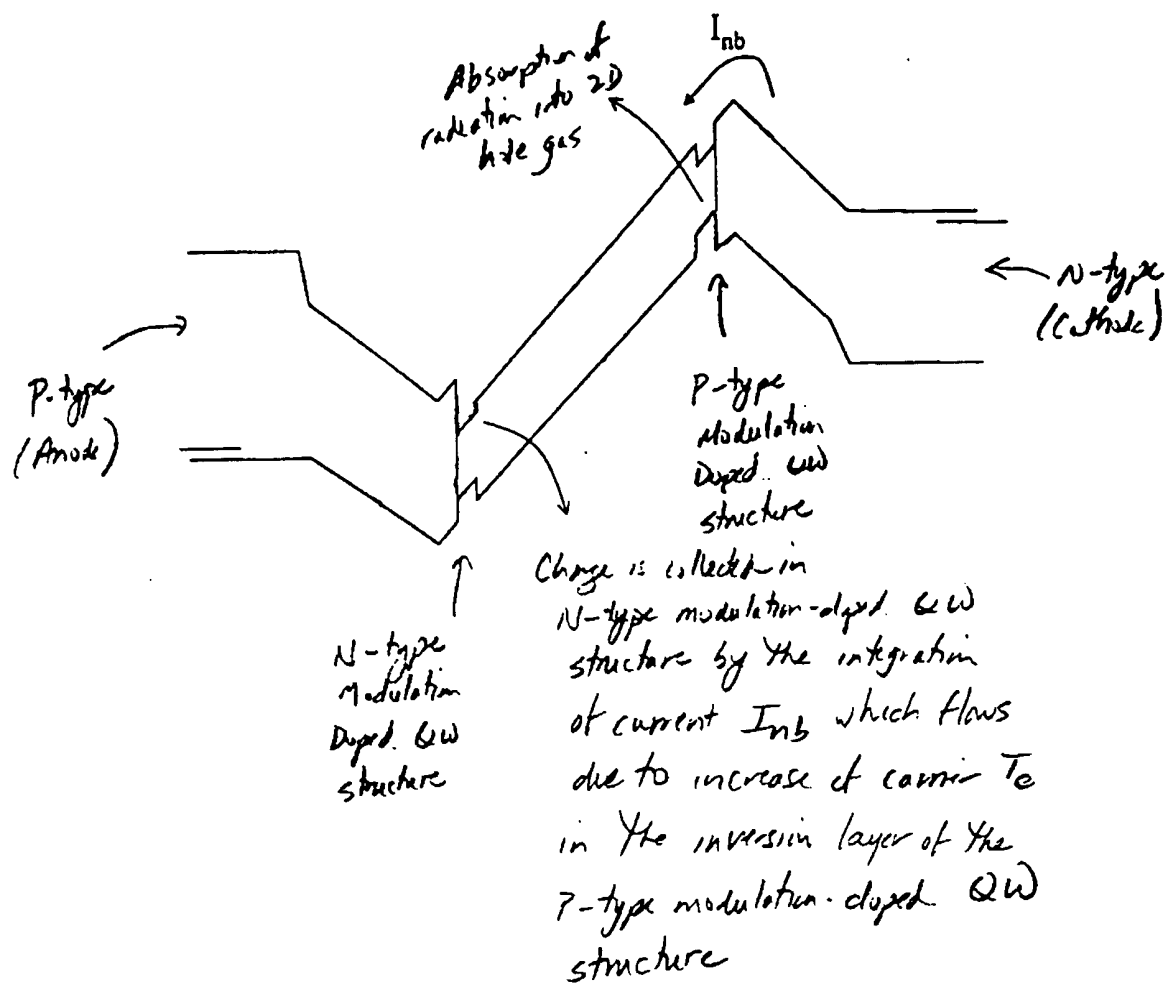 I_nb
Absorption of
radiation into 2D
hole gas
N-type
(Cathode)
P-type
(Anode)
P-type
Modulation
Doped QW
structure
N-type
Modulation
Doped QW
structure
Charge is collected in
N-type modulation-doped QW
structure by the integration
of current I_nb which flows
due to increase of carrier T_e
in the inversion layer of the
P-type modulation-doped QW
structure